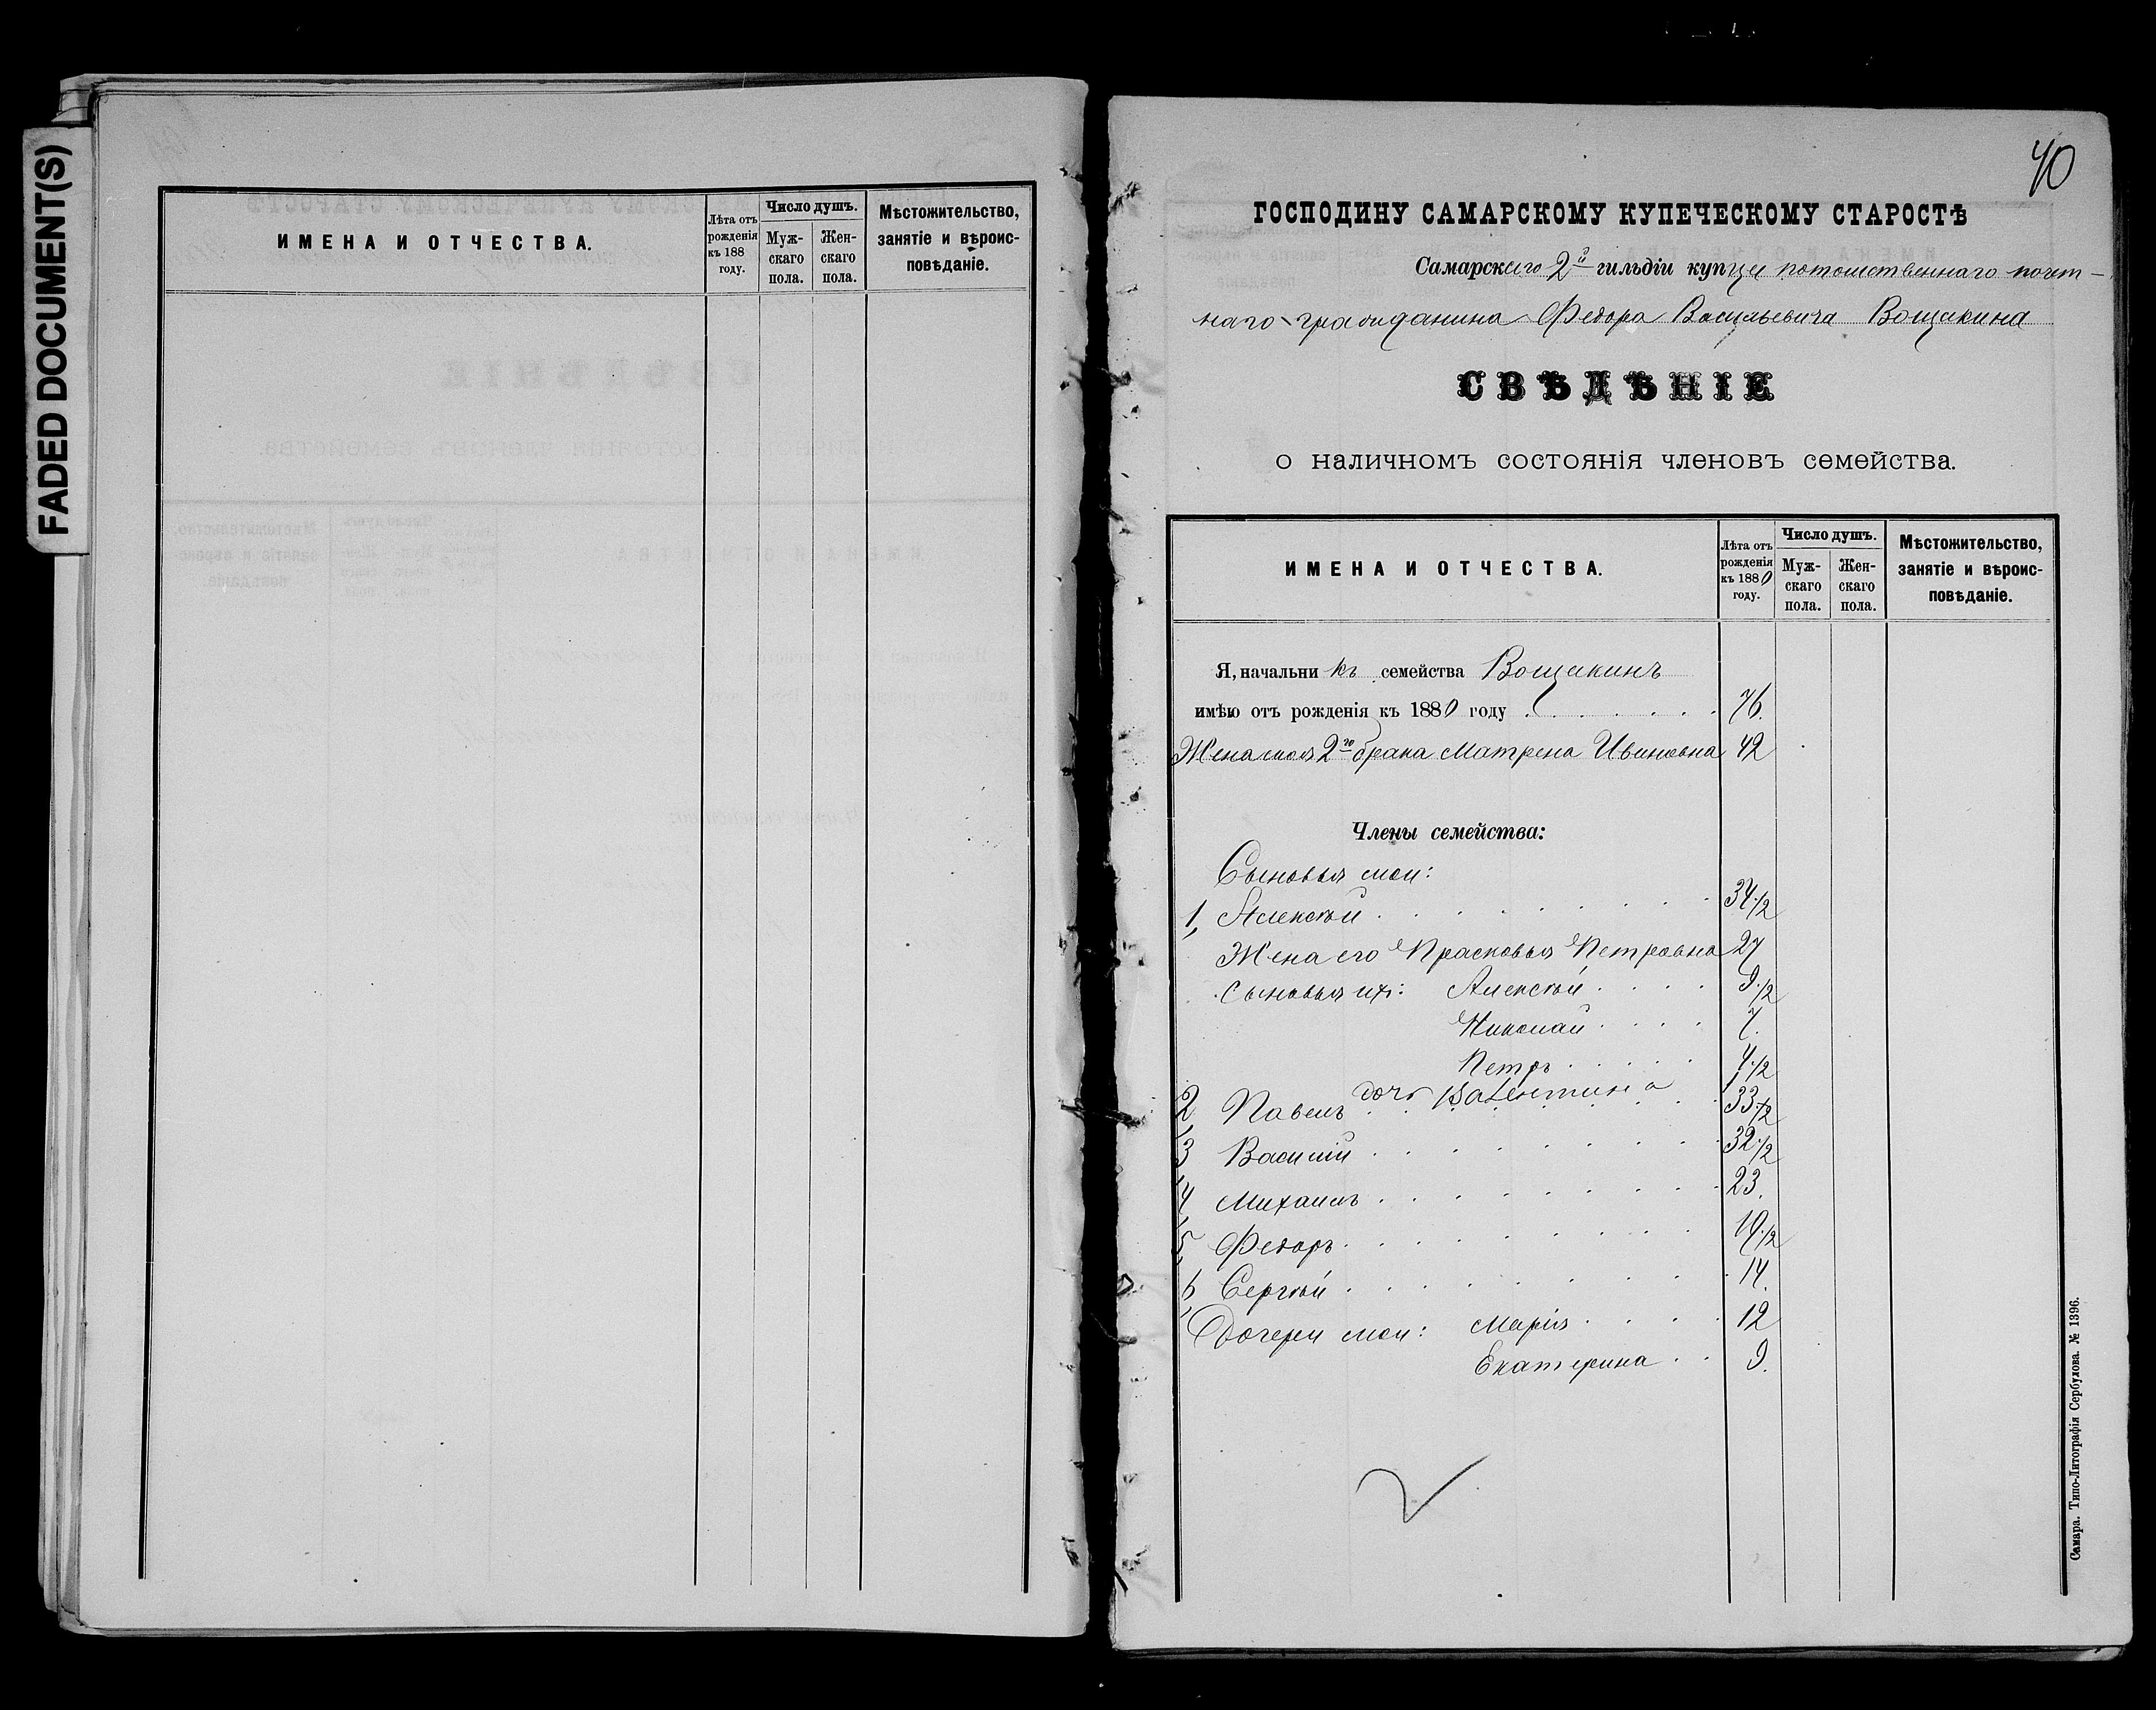 FADED DOCUMENT(S)
ИМЕНА И ОТЧЕСТВА.
Лѣта отъ рожденія къ 188 году.
Число душъ.
Мужскаго пола.
Женскаго пола.
Мѣстожительство, занятіе и вѣроисповѣданіе.
40
ГОСПОДИНУ САМАРСКОМУ КУПЕЧЕСКОМУ СТАРОСТѢ
Самарскаго 2й гильдіи купца потомственнаго почт-
наго гражданина Федора Васильевича Вощакина
СВѢДѢНІЕ
о наличномъ состоянія членовъ семейства.
ИМЕНА И ОТЧЕСТВА.
Лѣта отъ рожденія къ 1880 году.
Число душъ.
Мужскаго пола.
Женскаго пола.
Мѣстожительство, занятіе и вѣроисповѣданіе.
Я, начальникъ семейства Вощакинъ
имѣю отъ рожденія къ 1880 году . . . . . 76.
Жена моя 2го брака Матрена Ивановна 42
Члены семейства:
Сыновья мои:
1, Алексѣй . . . . . . . . 34 1/2
Жена его Прасковья Петровна 27
Сыновья ихъ: Алексѣй . . . . 9 1/2
Николай . . . . 7.
Петръ . . . . . 4 1/2
дочь Валентина
2, Павелъ . . . . . . . . 33 1/2
3, Василій . . . . . . . . 32 1/2
4, Михаилъ . . . . . . . . 23.
5, Федоръ . . . . . . . . 19 1/2
6, Сергѣй . . . . . . . . 14.
Дочери мои: Марія . . . . 12
Екатерина . . 9.
Самара. Типо-Литографія Сербулова. № 1396.